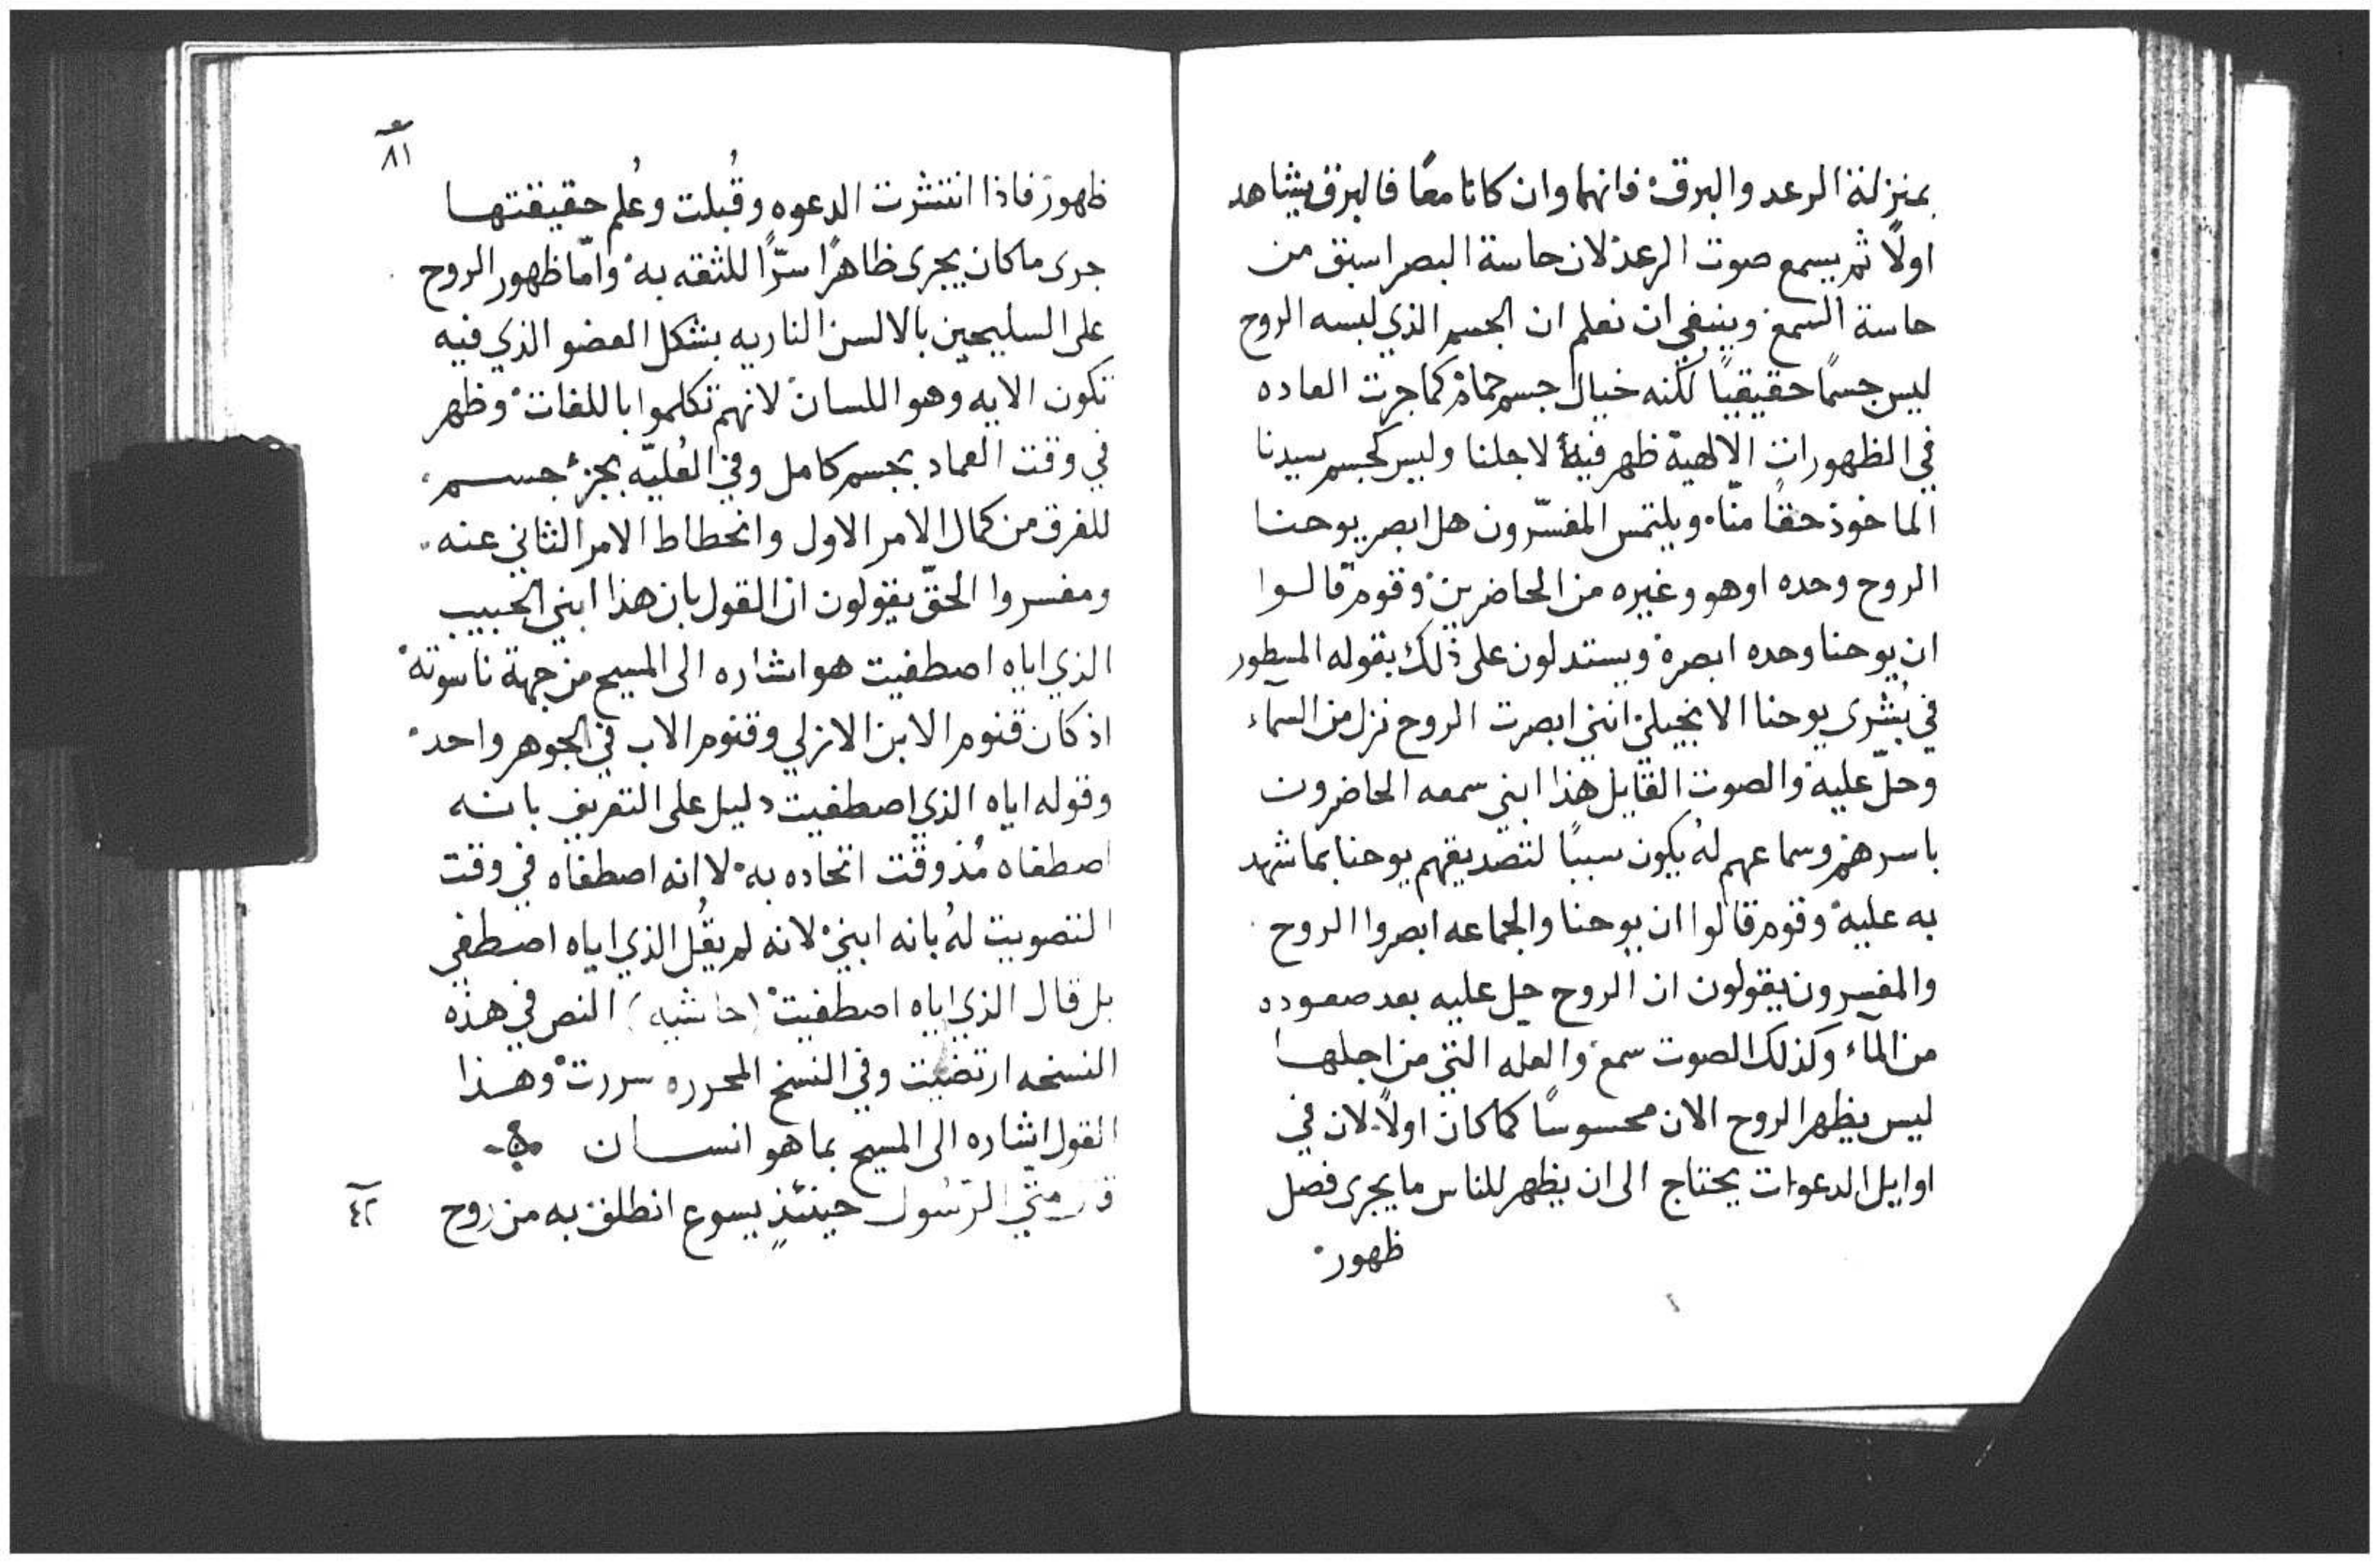 بمنزلة الرعد والبرق۰ فانهما وان كانا معًا فالبرق يشاهد
اولًا ثم يسمع صوت الرعد۰ لان حاسة البصر اسبق من
حاسة السمع۰ وينبغي ان نعلم ان الجسم الذي لبسه الروح
ليس جسمًا حقيقيًا لكنه خيال جسم حمامة كما جرت العاده
في الظهورات الالهية ظهر فيها لاجلنا وليس كجسم سيدنا
الماخوذ حقًا منّا۰ ويلتمس المفسّرون هل ابصر يوحنا
الروح وحده او هو وغيره من الحاضرين۰ وقوم قالوا
ان يوحنا وحده ابصره ويستدلون على ذلك بقوله المسطور
في بُشرى يوحنا الانجيلي انني ابصرت الروح نزل من السمآء
وحلّ عليه۰ والصوت القايل هذا ابني سمعه الحاضرون
باسرهم۰ وسماعهم له يكون سببًا لتصديقهم يوحنا بما شهد
به عليه۰ وقوم قالوا ان يوحنا والجماعه ابصروا الروح
والمفسرون يقولون ان الروح حل عليه بعد صعوده
من المآء وكذلك الصوت سمع۰ والعله التي من اجلها
ليس يظهر الروح الان محسوسًا كما كان اولًا۰ لان في
اوايل الدعوات يحتاج الى ان يظهر للناس ما يجرى فصل
ظهور۰
٨١
ظهور۰ فاذا انتشرت الدعوه وقُبلت وعُلم حقيقتها
جرى ما كان يجرى ظاهرًا سرًّا للثقه به۰ وامّا ظهور الروح
على السليحين بالالسن الناريه بشكل العضو الذي فيه
تكون الايه وهو اللسان۰ لانهم تكلموا باللغات۰ وظهر
في وقت العماد بجسم كامل وفي العُليّه بجزء جسم۰
للفرق من كمال الامر الاول وانحطاط الامر الثاني عنه۰
ومفسروا الحقّ يقولون ان القول بان هذا ابني الحبيب
الذي اياه اصطفيت هو اشاره الى المسيح من جهة ناسوته۰
اذ كان قنوم الابن الازلي وقنوم الاب في الجوهر واحد۰
وقوله اياه الذي اصطفيت دليل على التعريف بانه
اصطفاه مُذ وقت اتحاده به۰ لا انه اصطفاه في وقت
التصويت لهُ بانه ابني۰ لانه لم يقُل الذي اياه اصطفي
بل قال الذي اياه اصطفيت۰ (حاشيه) النص في هذه
النسخه ارتضيت وفي النسخ المحرره سررت۰ وهذا
القول اشاره الى المسيح بما هو انسان
قال متي الرسول حينئذٍ يسوع انطلق به من روح
٤٢